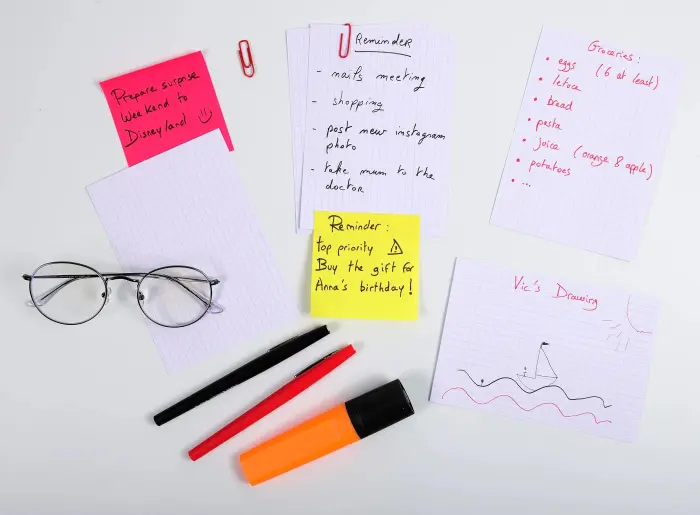 Prepare surprise
Weekend to
Disneyland :)
Reminder
- nails meeting
- shopping
- post new instagram
photo
- take mum to the
doctor
Reminder:
top priority ⚠
Buy the gift for
Anna's birthday!
Groceries:
• eggs (6 at least)
• letuce
• bread
• pasta
• joice (orange & apple)
• potatoes
• ...
Vic's Drawing